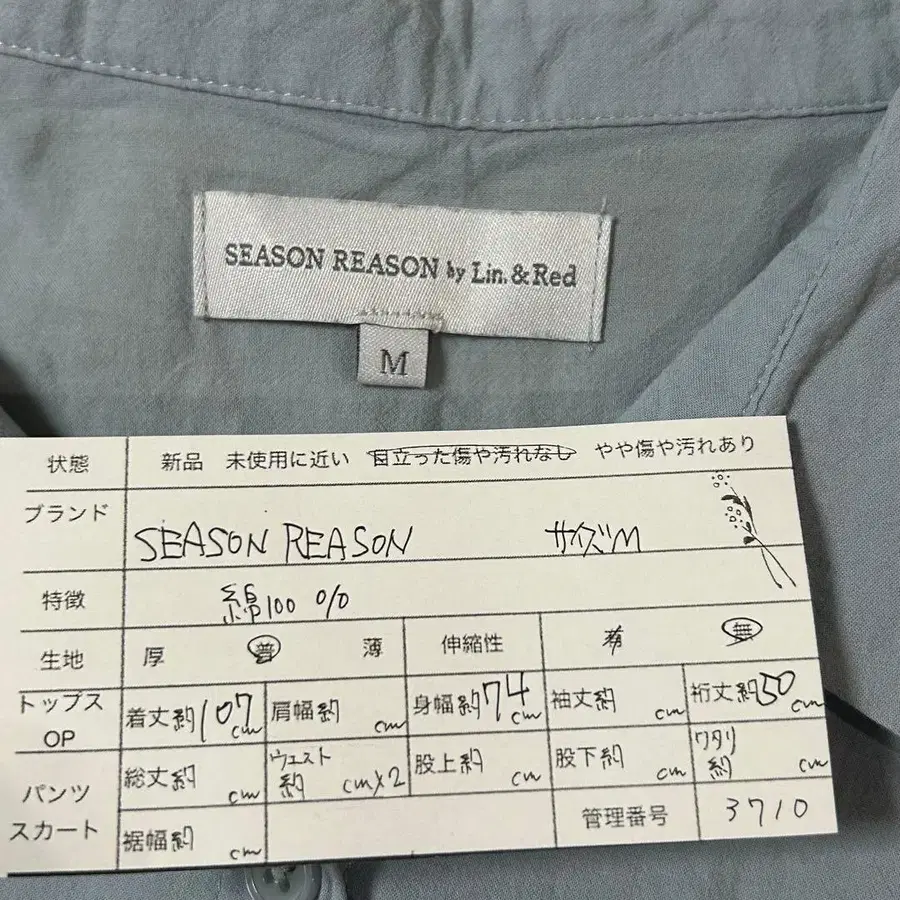 SEASON REASON by Lin.&Red
M
状態 新品 未使用に近い 目立った傷や汚れなし やや傷や汚れあり
ブランド SEASON REASON サイズM
特徴 綿100%
生地 厚 普 薄 伸縮性 有 無
トップス OP 着丈約107cm 肩幅約 cm 身幅約74cm 袖丈約 cm 裄丈約50cm
パンツ スカート 総丈約 cm ウエスト約 cm×2 股上約 cm 股下約 cm ワタリ約 cm
裾幅約 cm 管理番号 3710